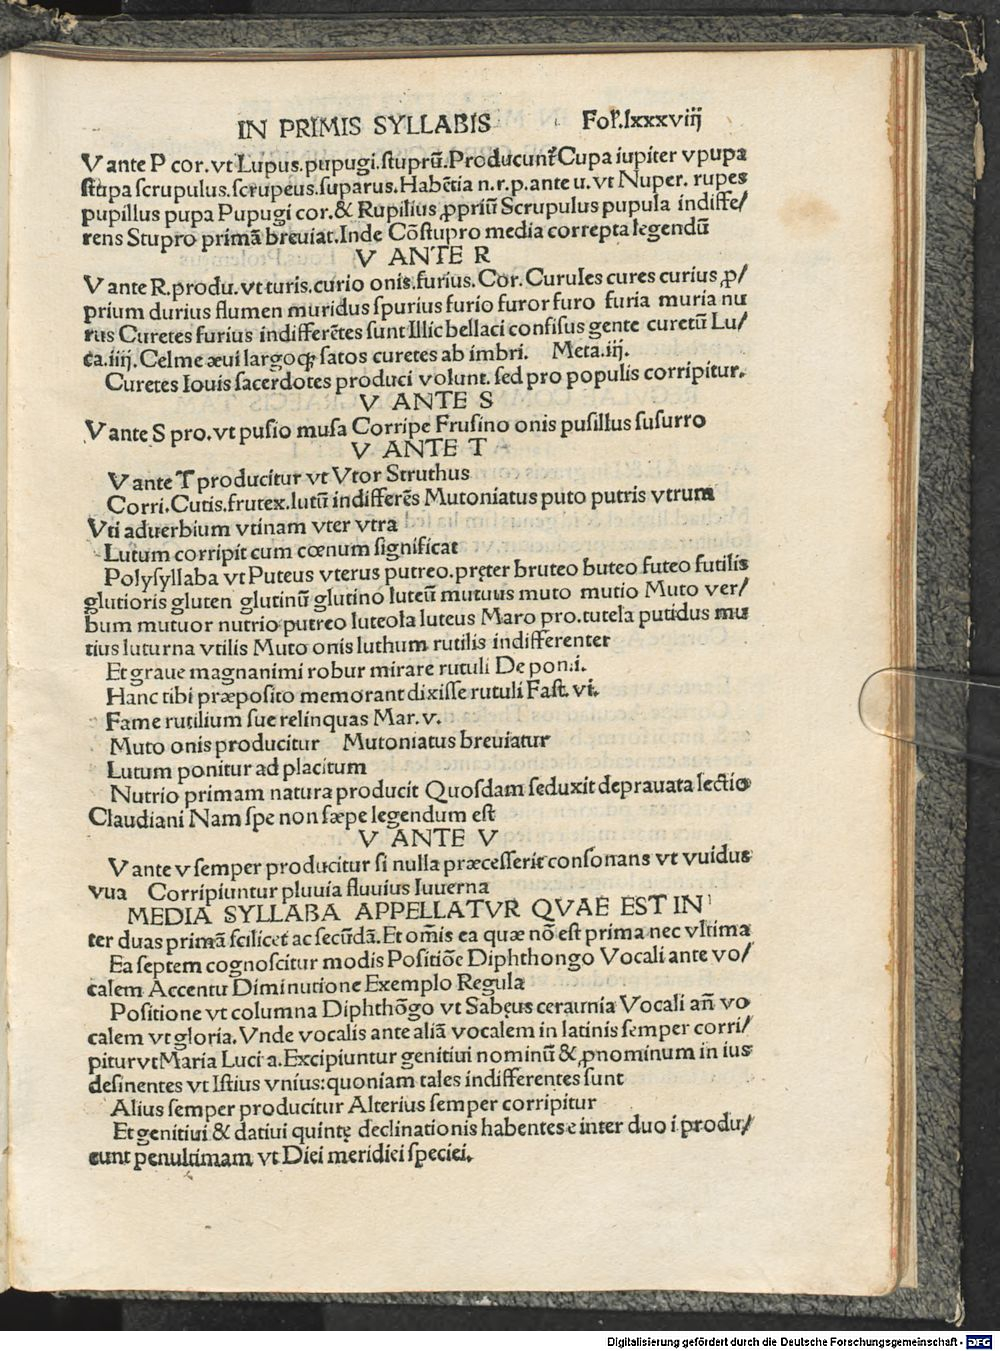 IN PRIMIS SYLLABIS Fol. lxxxviij
V ante P cor. vt Lupus. pupugi. ſtuprū. Producunt̃ Cupa iupiter vpupa
ſtupa ſcrupulus. ſcrupeus. ſuparus. Habẽtia n. r. p. ante u. vt Nuper. rupes
pupillus pupa Pupugi cor. & Rupilius ꝓpriū Scrupulus pupula indiffe/
rens Stupro primā breuiat. Inde Cōſtupro media correpta legendū
V ANTE R
V ante R. produ. vt turis. curio onis. furius. Cor. Curules cures curius ꝓ/
prium durius flumen muridus ſpurius furio furor furo furia muria nu
rus Curetes furius indifferẽtes ſunt Illic bellaci confiſus gente curetū Lu/
ca. iiij. Celme æui largoqꝫ ſatos curetes ab imbri. Meta. iij.
Curetes Iouis ſacerdotes produci volunt. ſed pro populis corripitur.
V ANTE S
V ante S pro. vt puſio muſa Corripe Fruſino onis puſillus ſuſurro
V ANTE T
V ante T producitur vt Vtor Struthus
Corri. Cutis. frutex. lutū indifferẽs Mutoniatus puto putris vtrum
Vti aduerbium vtinam vter vtra
Lutum corripit cum cœnum ſignificat
Polyſyllaba vt Puteus vterus putreo. pręter bruteo buteo futeo futilis
glutioris gluten glutinū glutino luteū mutuus muto mutio Muto ver/
bum mutuor nutrio putreo luteola luteus Maro pro. tutela putidus mu
tius luturna vtilis Muto onis luthum rutilis indifferenter
Et graue magnanimi robur mirare rutuli De pon. i.
Hanc tibi præpoſito memorant dixiſſe rutuli Faſt. vi.
Fame rutilium ſue relinquas Mar. v.
Muto onis producitur Mutoniatus breuiatur
Lutum ponitur ad placitum
Nutrio primam natura producit Quoſdam ſeduxit deprauata lectio
Claudiani Nam ſpe non ſæpe legendum eſt
V ANTE V
V ante v ſemper producitur ſi nulla præceſſerit conſonans vt vuidus
vua Corripiuntur pluuia fluuius Iuuerna
MEDIA SYLLABA APPELLATVR QVAE EST IN
ter duas primā ſcilicet ac ſecūdā. Et om̃is ea quæ nō eſt prima nec vltima
Ea ſeptem cognoſcitur modis Poſitiōe Diphthongo Vocali ante vo/
calem Accentu Diminutione Exemplo Regula
Poſitione vt columna Diphthōgo vt Sabęus ceraunia Vocali añ vo
calem vt gloria. Vnde vocalis ante aliā vocalem in latinis ſemper corri/
pitur vt Maria Luci a. Excipiuntur genitiui nominū & ꝓnominum in ius
deſinentes vt Iſtius vnius: quoniam tales indifferentes ſunt
Alius ſemper producitur Alterius ſemper corripitur
Et genitiui & datiui quintę declinationis habentes e inter duo i produ/
cunt penultimam vt Diei meridiei ſpeciei.
Digitalisierung gefördert durch die Deutsche Forschungsgemeinschaft - DFG